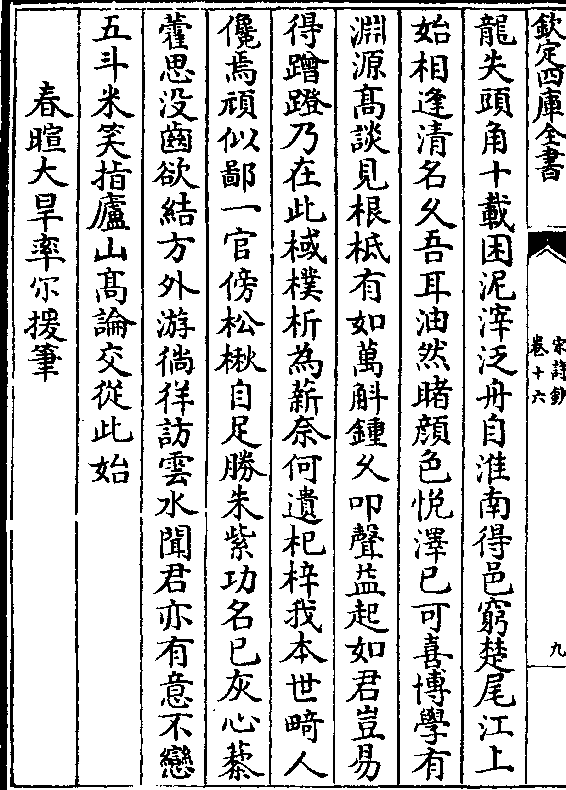 欽定四庫全書
宋詩鈔
卷十六
九
龍失頭角十載困泥滓泛舟自淮南得邑窮楚尾江上
始相逢清名久吾耳油然睹顔色悦澤已可喜博學有
淵源髙談見根柢有如萬斛鍾久叩聲益起如君豈易
得蹭蹬乃在此棫樸析為薪奈何遺杞梓我本世畸人
儳焉頑似鄙一官傍松楸自足勝朱紫功名已灰心藜
藿思没齒欲結方外游徜徉訪雲水聞君亦有意不戀
五斗米笑指廬山髙論交從此始
春暄大旱率尓援筆